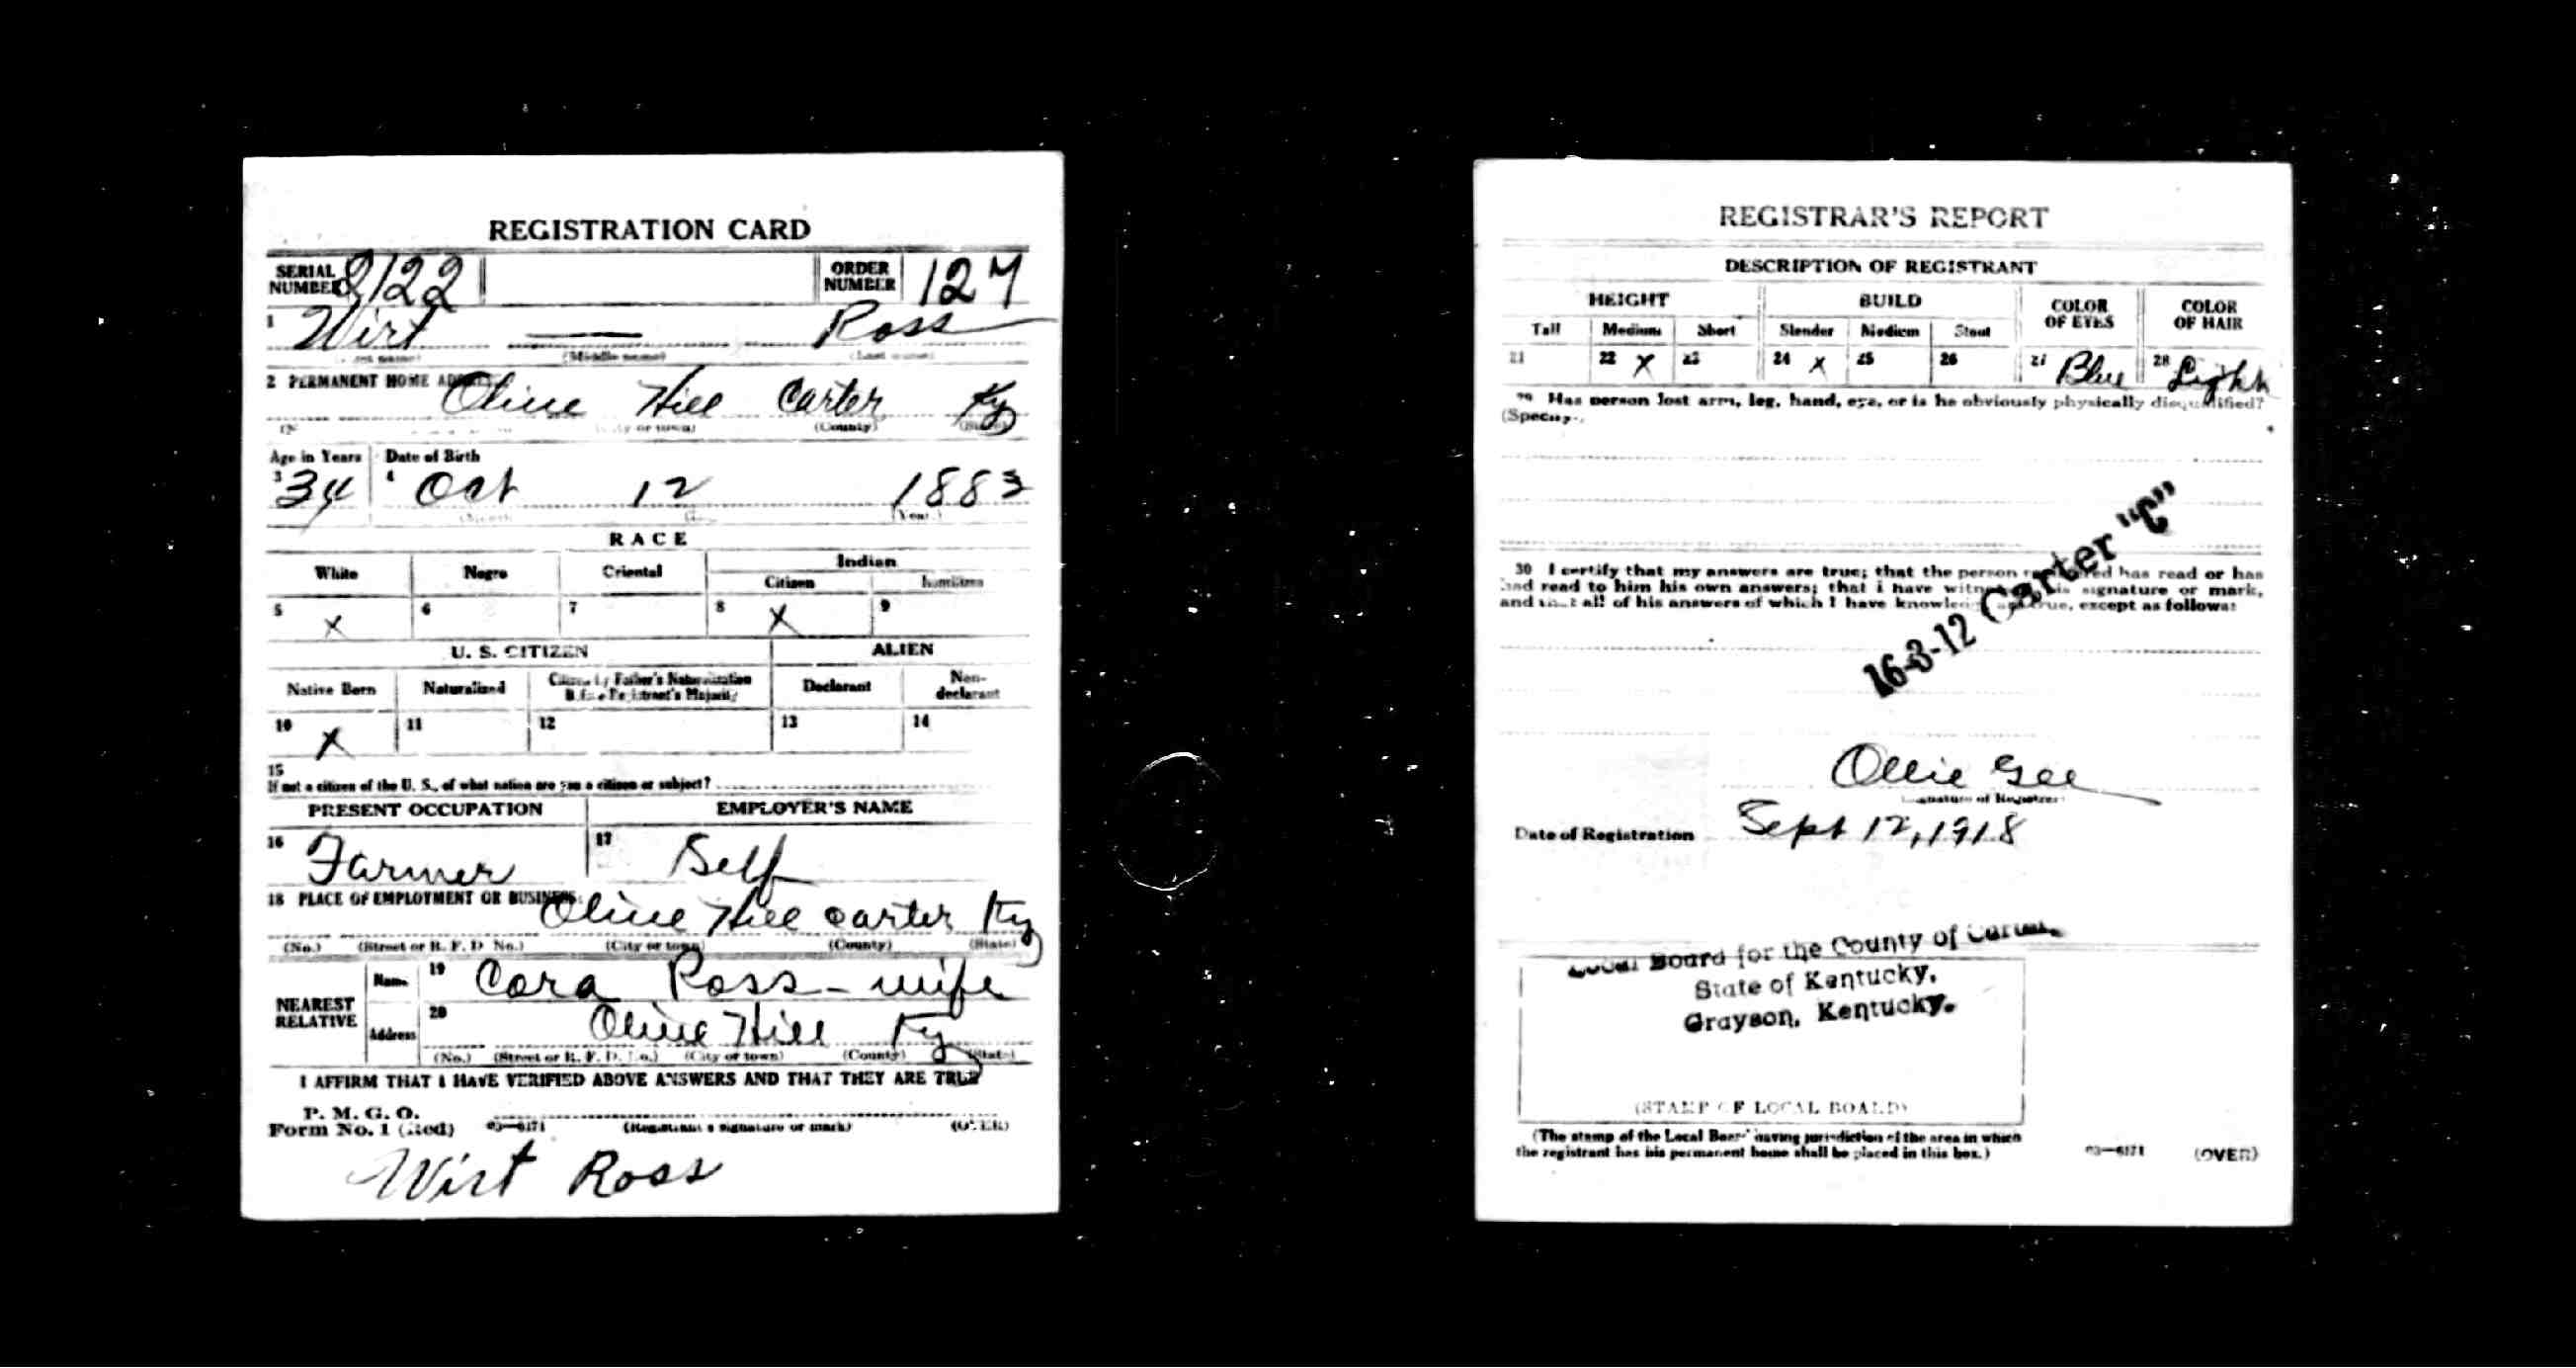 REGISTRATION CARD
SERIAL NUMBER 2122 ORDER NUMBER 127
1 Wirt — Ross
(Middle name) (Last name)
2 PERMANENT HOME Olive Hill Carter Ky
(County)
Age in Years Date of Birth
3 34 4 Oct 12 1883
(Month) (Year)
RACE
White Negro Oriental Indian
Citizen
5 X 6 7 8 X 9
U. S. CITIZEN ALIEN
Native Born Naturalized Citizen by Father's Naturalization Before Registrant's Majority Declarant Non-declarant
10 X 11 12 13 14
15
If not a citizen of the U. S., of what nation are you a citizen or subject?
PRESENT OCCUPATION EMPLOYER'S NAME
16 Farmer 17 Self
18 PLACE OF EMPLOYMENT OR BUSINESS: Olive Hill Carter Ky
(No.) (Street or R. F. D. No.) (City or town) (County) (State)
NEAREST RELATIVE Name 19 Cora Ross - wife
Address 20 Olive Hill Ky
(No.) (Street or R. F. D. No.) (City or town) (County) (State)
I AFFIRM THAT I HAVE VERIFIED ABOVE ANSWERS AND THAT THEY ARE TRUE
P. M. G. O.
Form No. 1 (Red) 03—6171 (Registrant's signature or mark) (OVER)
Wirt Ross
REGISTRAR'S REPORT
DESCRIPTION OF REGISTRANT
HEIGHT BUILD COLOR OF EYES COLOR OF HAIR
Tall Medium Short Slender Medium Stout
21 22 X 23 24 X 25 26 27 Blue 28 Light
29 Has person lost arm, leg, hand, eye, or is he obviously physically disqualified?
(Specify.)
30 I certify that my answers are true; that the person registered has read or has
had read to him his own answers; that I have witnessed his signature or mark,
and that all of his answers of which I have knowledge are true, except as follows:
16-3-12 Carter "C"
Ollie Gee
(Signature of Registrar)
Date of Registration Sept 12, 1918
Local Board for the County of Carter,
State of Kentucky,
Grayson, Kentucky.
(STAMP OF LOCAL BOARD)
(The stamp of the Local Board having jurisdiction of the area in which
the registrant has his permanent home shall be placed in this box.)
03—6171 (OVER)